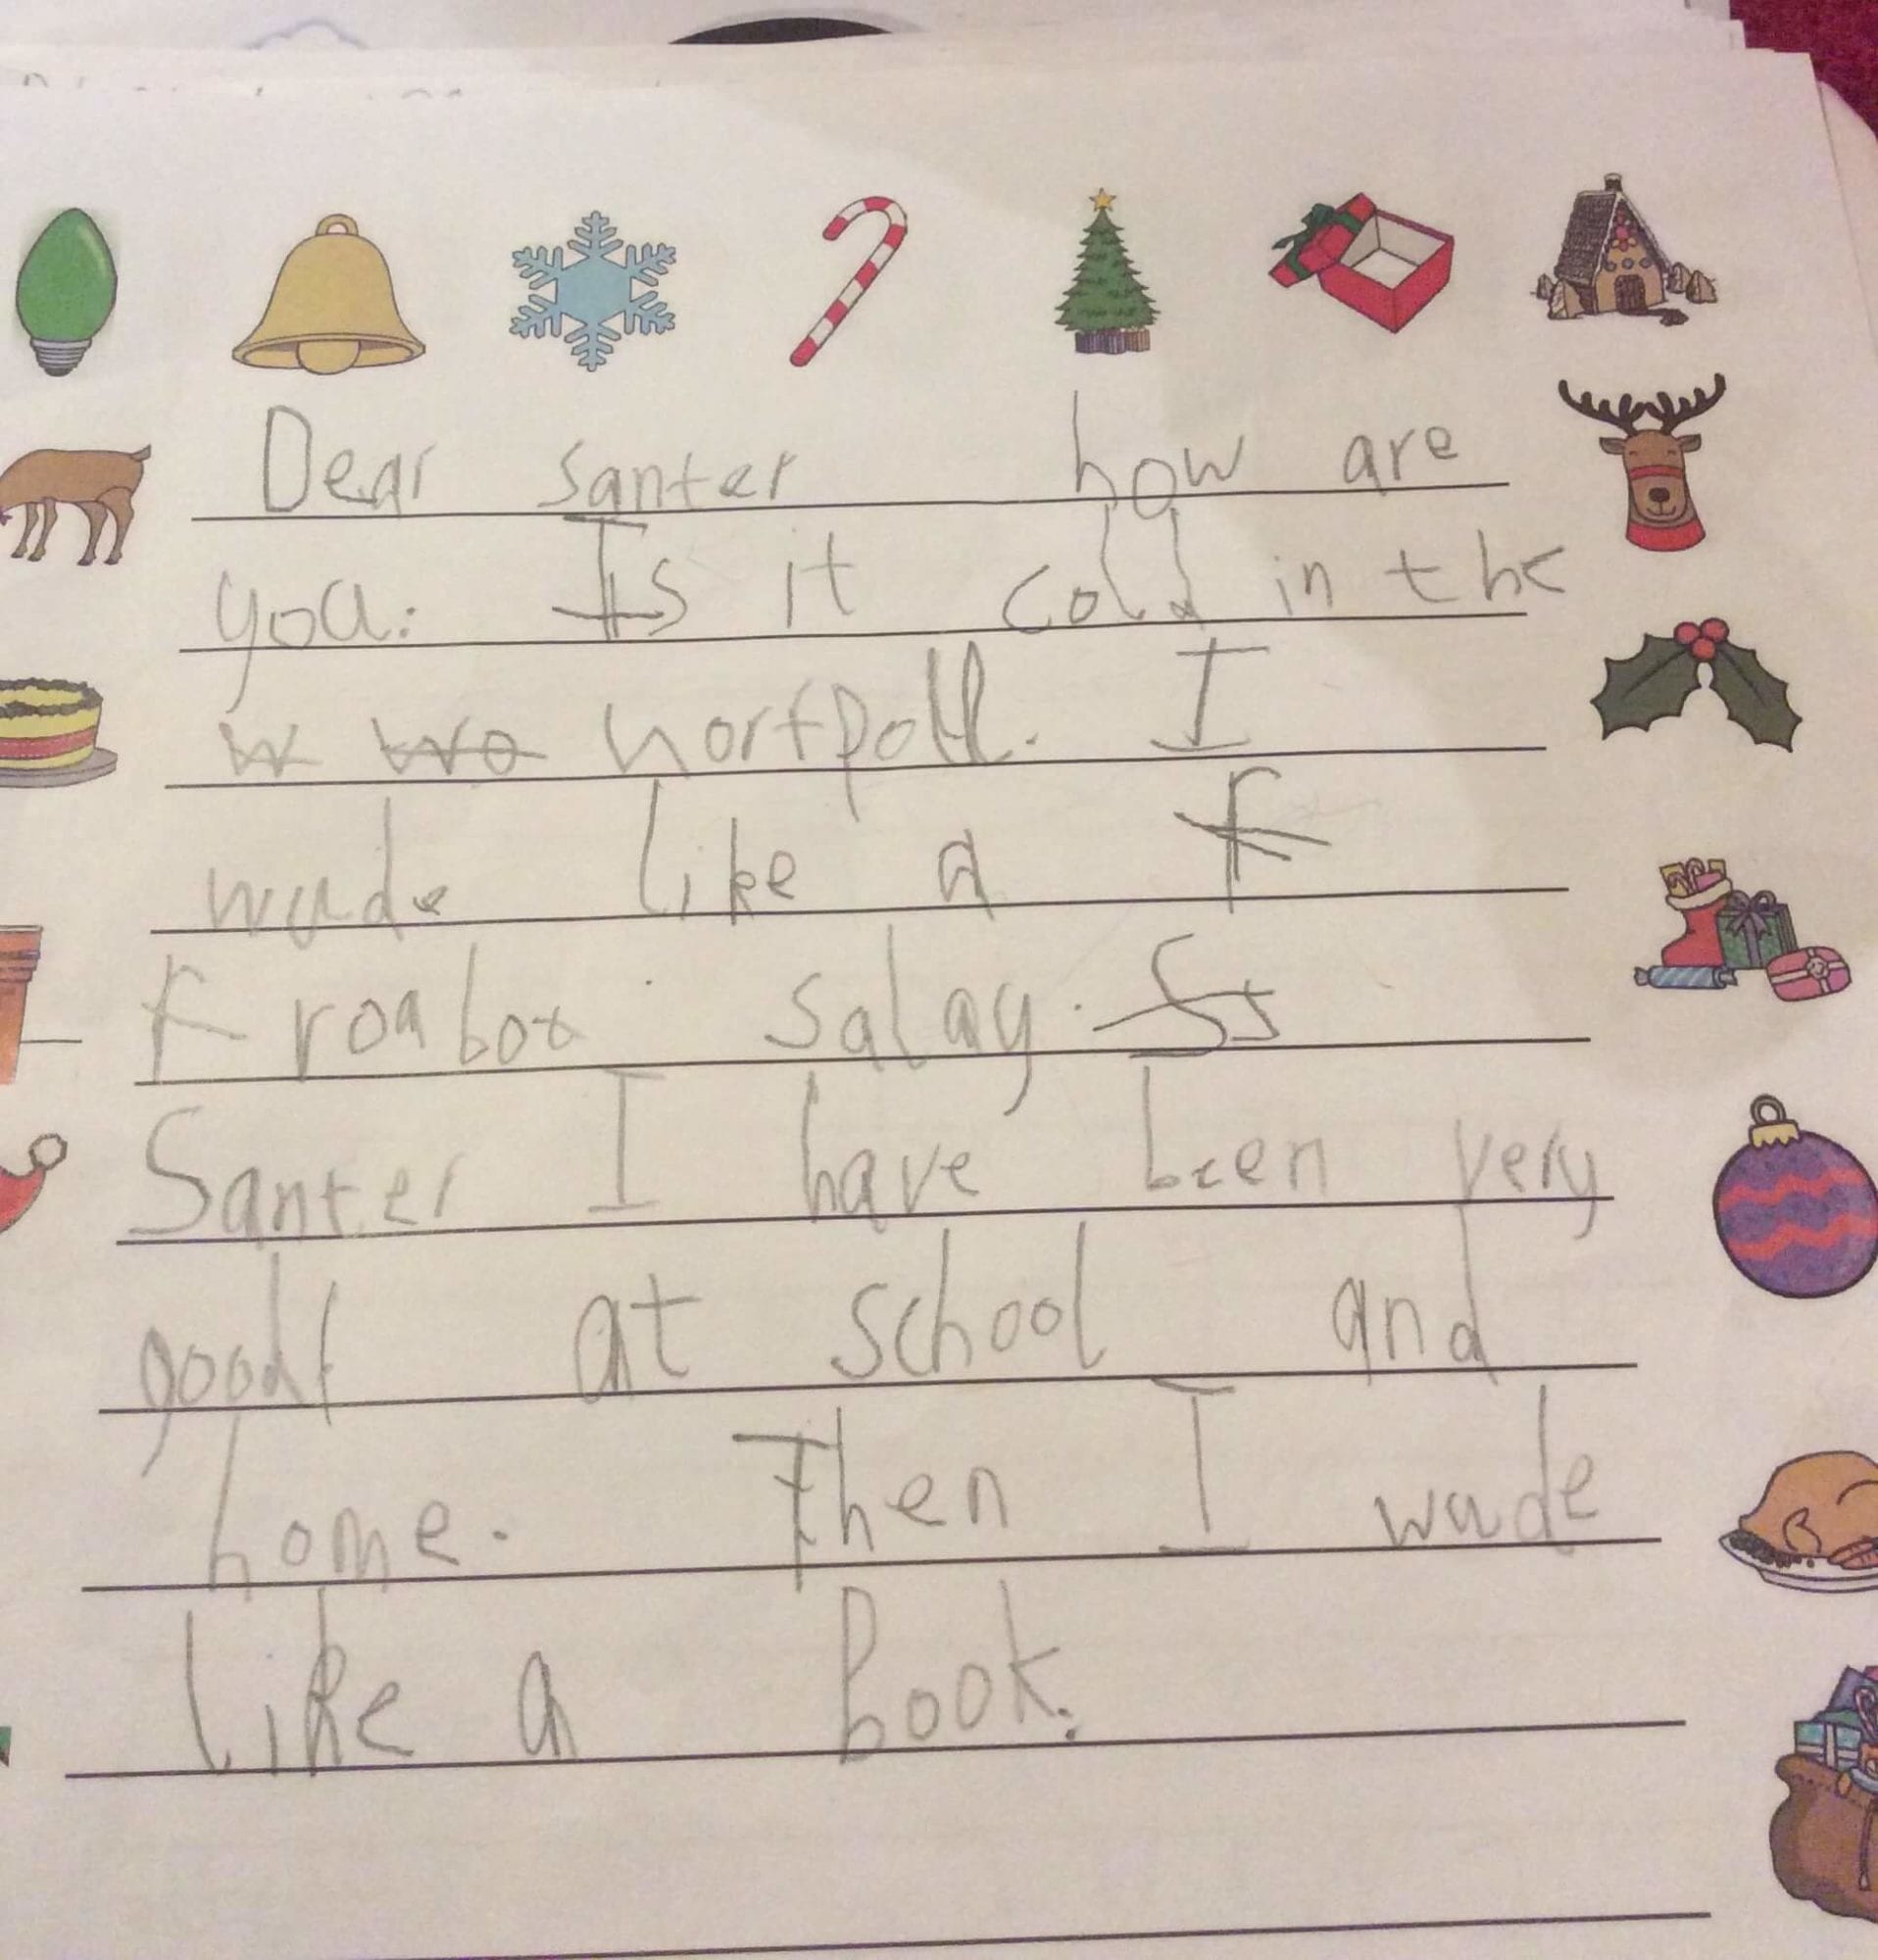 Dear santer how are
you. Is it cold in the
nortpoll. I
wude like a
roabot salay.
Santer I have been very
good at school and
home. Then I wude
like a book.